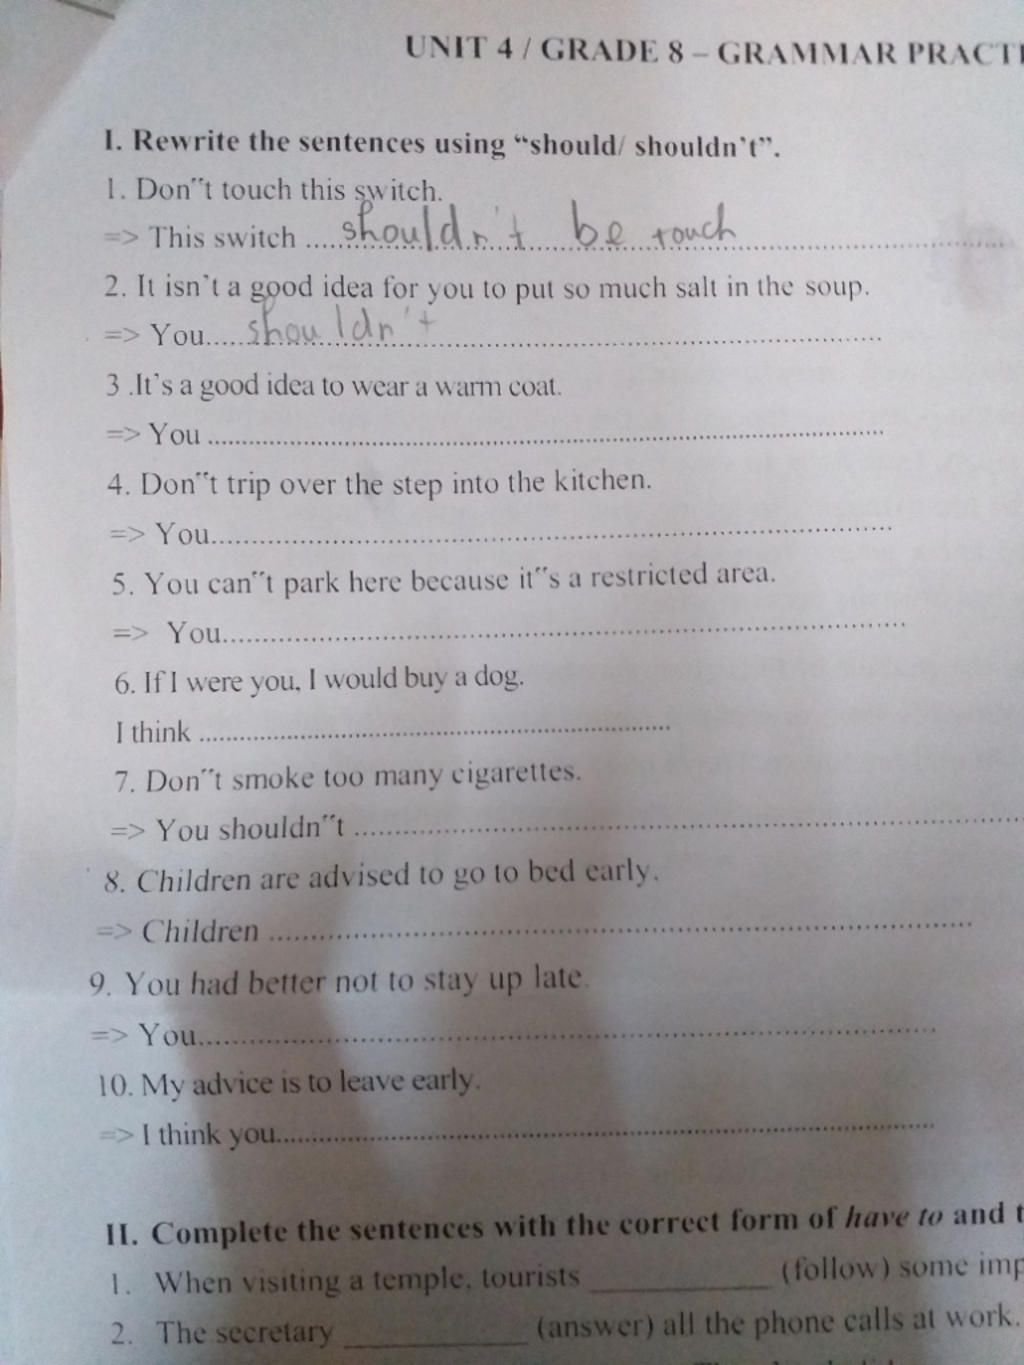 UNIT 4 / GRADE 8 – GRAMMAR PRACTI
I. Rewrite the sentences using “should/ shouldn’t”.
1. Don‟t touch this switch.
=> This switch ....shouldn't be touch....
2. It isn’t a good idea for you to put so much salt in the soup.
=> You.....shouldn't....
3 .It’s a good idea to wear a warm coat.
=> You ....
4. Don‟t trip over the step into the kitchen.
=> You....
5. You can‟t park here because it‟s a restricted area.
=> You....
6. If I were you, I would buy a dog.
I think ....
7. Don‟t smoke too many cigarettes.
=> You shouldn‟t ....
8. Children are advised to go to bed early.
=> Children ....
9. You had better not to stay up late.
=> You....
10. My advice is to leave early.
=> I think you....
II. Complete the sentences with the correct form of have to and t
1. When visiting a temple, tourists ____________ (follow) some imp
2. The secretary ____________ (answer) all the phone calls at work.